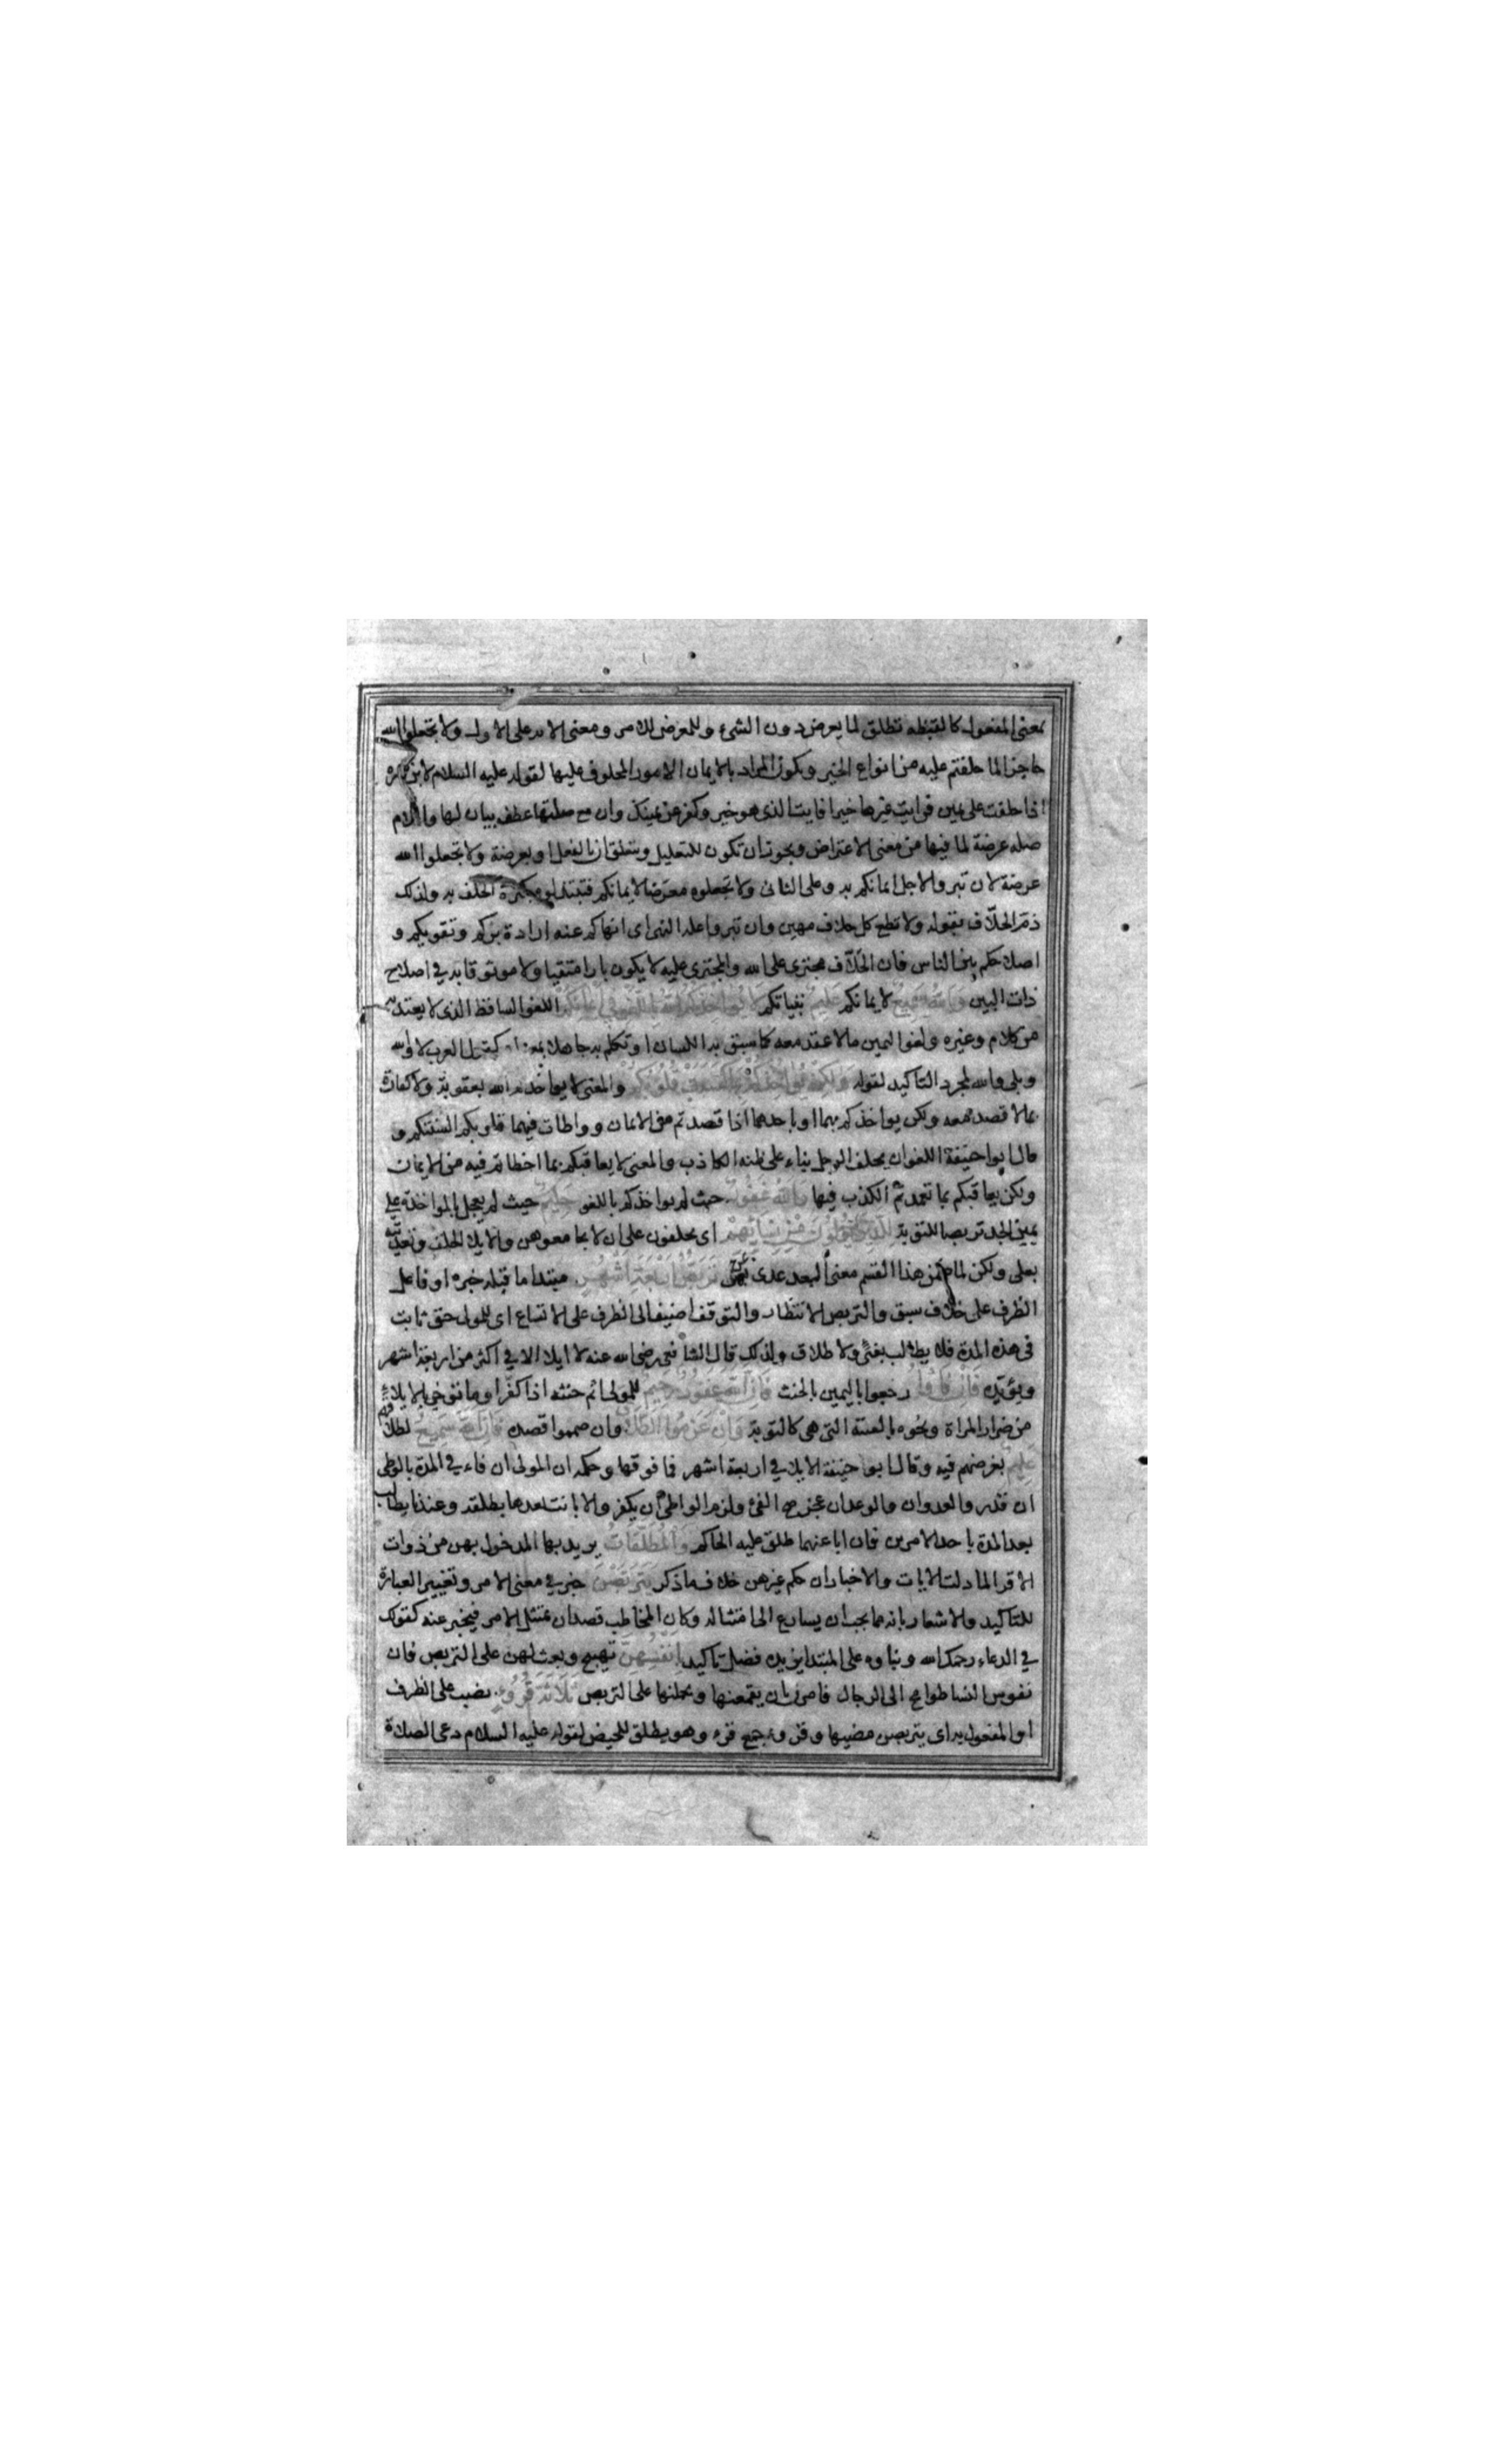 بمعنى المفعول كالقبضة تطلق لما يعرض دون الشئ وللمعرض للامر ومعنى الاية على الاول ولا تجعلوا الله
حاجزا لما حلفتم عليه من انواع الخير ويكون المراد بالايمان الامور المحلوف عليها لقوله عليه السلام لابن سمرة
اذا حلفت على يمين فرايت غيرها خيرا فايت الذى هو خير وكفر عن يمينك وان مع صلتها عطف بيان لها واللام
صلة عرضة لما فيها من معنى الاعتراض ويجوز ان تكون للتعليل ويتعلق ان بالفعل او بعرضة ولا تجعلوا الله
عرضة لان تبروا لاجل ايمانكم به وعلى الثانى ولا تجعلوه معرضا لايمانكم فتبتذلوه بكثرة الحلف به ولذلك
ذم الحلاف بقوله ولا تطع كل حلاف مهين وان تبروا علة النهى اى انهاكم عنه ارادة بركم وتقويكم و
اصلاحكم بين الناس فان الحلاف مجترى على الله والمجترى عليه لا يكون بارا متقيا ولا موثوقا به في اصلاح
ذات البين والله سميع لايمانكم عليم بنياتكم لا يؤاخذكم الله باللغو في ايمانكم اللغو الساقط الذى لا يعتد به
من كلام وغيره ولغو اليمين مالا عقد معه كما سبق به اللسان او تكلم به جاهلا بمعناه كقول العرب لا والله
وبلى والله لمجرد التاكيد لقوله ولكن يؤاخذكم بما كسبت قلوبكم والمعنى لا يواخذكم الله بعقوبة ولا كفارة
بمالا قصد معه ولكن يواخذكم بهما او باحدهما اذا قصدتم من الايمان وواطات فيهما قلوبكم السنتكم و
قال ابوا حنيفة اللغو ان يحلف الرجل بناء على ظنه الكاذب والمعنى لا يعاقبكم بما اخطاتم فيه من الايمان
ولكن يعاقبكم بما تعمدتم الكذب فيها والله غفور حيث لم يواخذكم باللغو حليم حيث لم يعجل بالمواخذة على
يمين الجد تربصا للتوبة للذين يؤلون من نسائهم اى يحلفون على ان لا يجامعوهن والايلا الحلف وتعديته
بعلى ولكن لما ضمن هذا القسم معنى البعد عدى بمن تربص اربعة اشهر مبتدا ما قبله خبره او فاعل
الظرف على خلاف سبق والتربص الانتظار والتوقف اضيف الى الظرف على الاتساع اى للمولى حق ثابت
فى هذه المدة فلا يطالب بفئ ولا طلاق ولذلك قال الشافعى رضى الله عنه لا ايلا الا في اكثر من اربعة اشهر
ويؤيده فان فاؤا رجعوا باليمين بالحنث فان الله غفور رحيم للمولى اثم حنثه اذا كفر او ما توخى بالايلاء
من ضرار المراة ونحوه بالفيئة التى هى كالتوبة وان عزموا الطلاق وان صمموا قصده فان الله سميع لطلاقهم
عليم بغرضهم فيه وقال ابوا حنيفة الايلا في اربعة اشهر فما فوقها وحكمه ان المولى ان فاء في المدة بالوطى
ان قدر والعدوان والوعد ان عجز صح الفئ ولزم الواطى ان يكفر والا بانت بعدها بطلقة وعندنا يطالب
بعد المدة باحد الامرين فان ابا عنهما طلق عليه الحاكم والمطلقات يريد بها المدخول بهن من ذوات
الاقرا لما دلت الايات والاخبار ان حكم غيرهن خلاف ما ذكر يتربصن خبر في معنى الامر وتغيير العبارة
للتاكيد والاشعار بانه مما يجب ان يسارع الى امتثاله وكان المخاطب قصد ان يمتثل الامر فيخبر عنه كقولك
في الدعاء رحمك الله وبناوه على المبتدا يزيده فضل تاكيد بانفسهن تهييج وبعث لهن على التربص فان
نفوس النسا طوامح الى الرجال فامرن بان يقمعنها ويحملنها على التربص ثلاثة قروء نصب على الظرف
او المفعول به اى يتربصن مضيها وقروء جمع قرء وهو يطلق للحيض لقوله عليه السلام دعى الصلاة